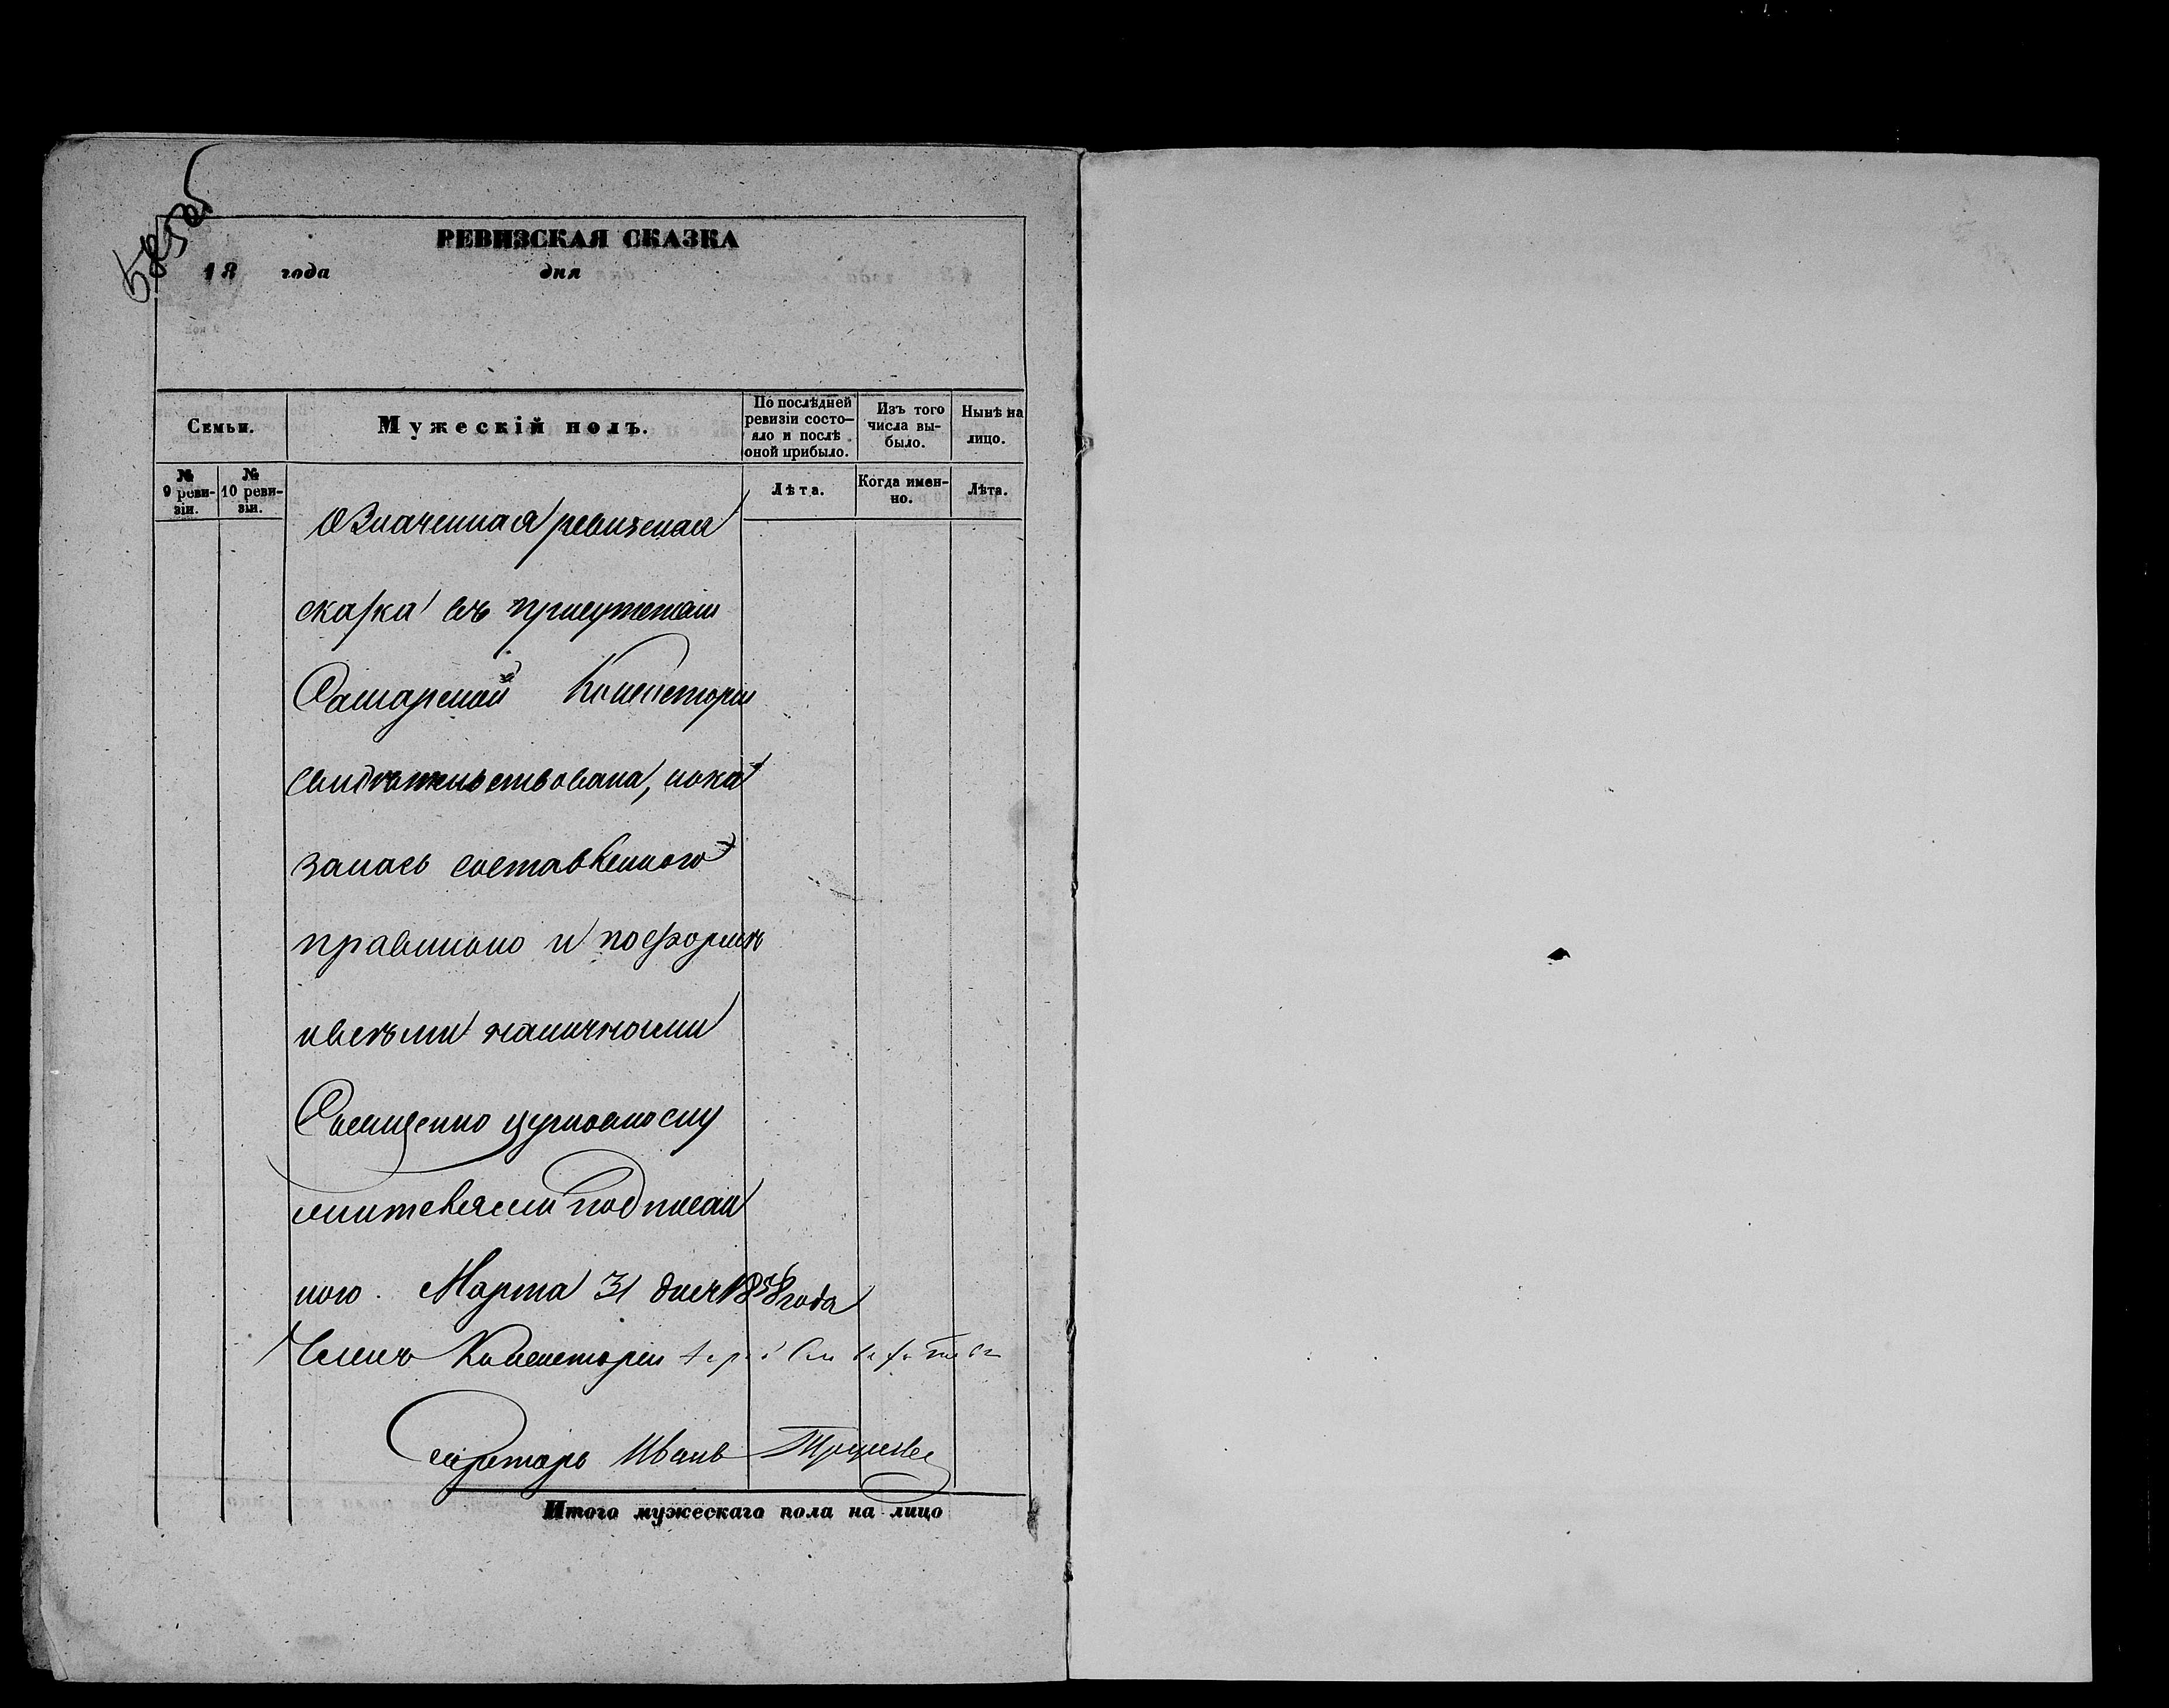 РЕВИЗСКАЯ СКАЗКА
18 года дня
Семьи.
Мужескій полъ.
По послѣдней ревизіи состо-
яло и послѣ оной прибыло.
Изъ того числа вы-
было.
Нынѣ на лицо.
№ 9 реви-
зіи.
№ 10 реви-
зіи.
Лѣта.
Когда имен-
но.
Лѣта.
Означенная ревизская
сказка въ присутствіи
Самарской Консисторіи
свидѣтельствована, пока
залась составленного
правильно и по формѣ
и всѣми наличными
Священно церковно слу
жителями подписан
ною. Марта 31 дня 1858 года
Членъ Консисторіи
Секретарь Иванъ
Итого мужескаго пола на лицо